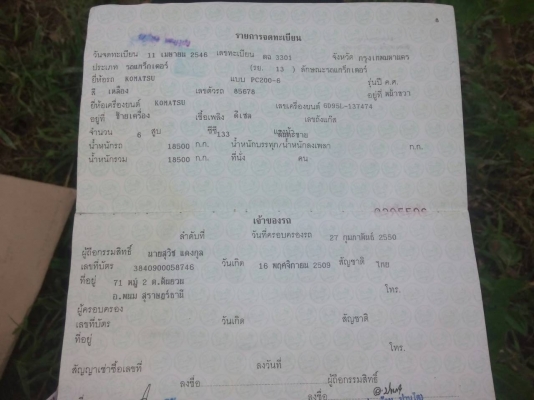 4
รายการจดทะเบียน
วันจดทะเบียน 11 เมษายน 2546 เลขทะเบียน ตฉ 3301 จังหวัด กรุงเทพมหานคร
ประเภท รถแทร็กเตอร์ (รย. 13 ) ลักษณะรถแทร็กเตอร์
ยี่ห้อรถ KOMATSU แบบ PC200-6 รุ่นปี ค.ศ.
สี เหลือง เลขตัวรถ 85678 อยู่ที่
ยี่ห้อเครื่องยนต์ KOMATSU เลขเครื่องยนต์ 6D95L-137474
อยู่ที่ ซ้ายเครื่อง เชื้อเพลิง ดีเซล เลขถังแก๊ส
จำนวน 6 สูบ ซีซี 133 แรงม้า
น้ำหนักรถ 18500 ก.ก. น้ำหนักบรรทุก/น้ำหนักลงเพลา ก.ก.
น้ำหนักรวม 18500 ก.ก. ที่นั่ง คน
เจ้าของรถ
ลำดับที่ วันที่ครอบครองรถ 27 กุมภาพันธ์ 2550
ผู้ถือกรรมสิทธิ์ นายสุวิช แดงกุล
เลขที่บัตร 3840900058746 วันเกิด 16 พฤศจิกายน 2509 สัญชาติ ไทย
ที่อยู่ 71 หมู่ 2 ต.
อ.พนม สุราษฎร์ธานี โทร.
ผู้ครอบครอง
เลขที่บัตร วันเกิด สัญชาติ
ที่อยู่
โทร.
สัญญาเช่าซื้อเลขที่ ลงวันที่
ลงชื่อ ผู้ถือกรรมสิทธิ์
ลงชื่อ